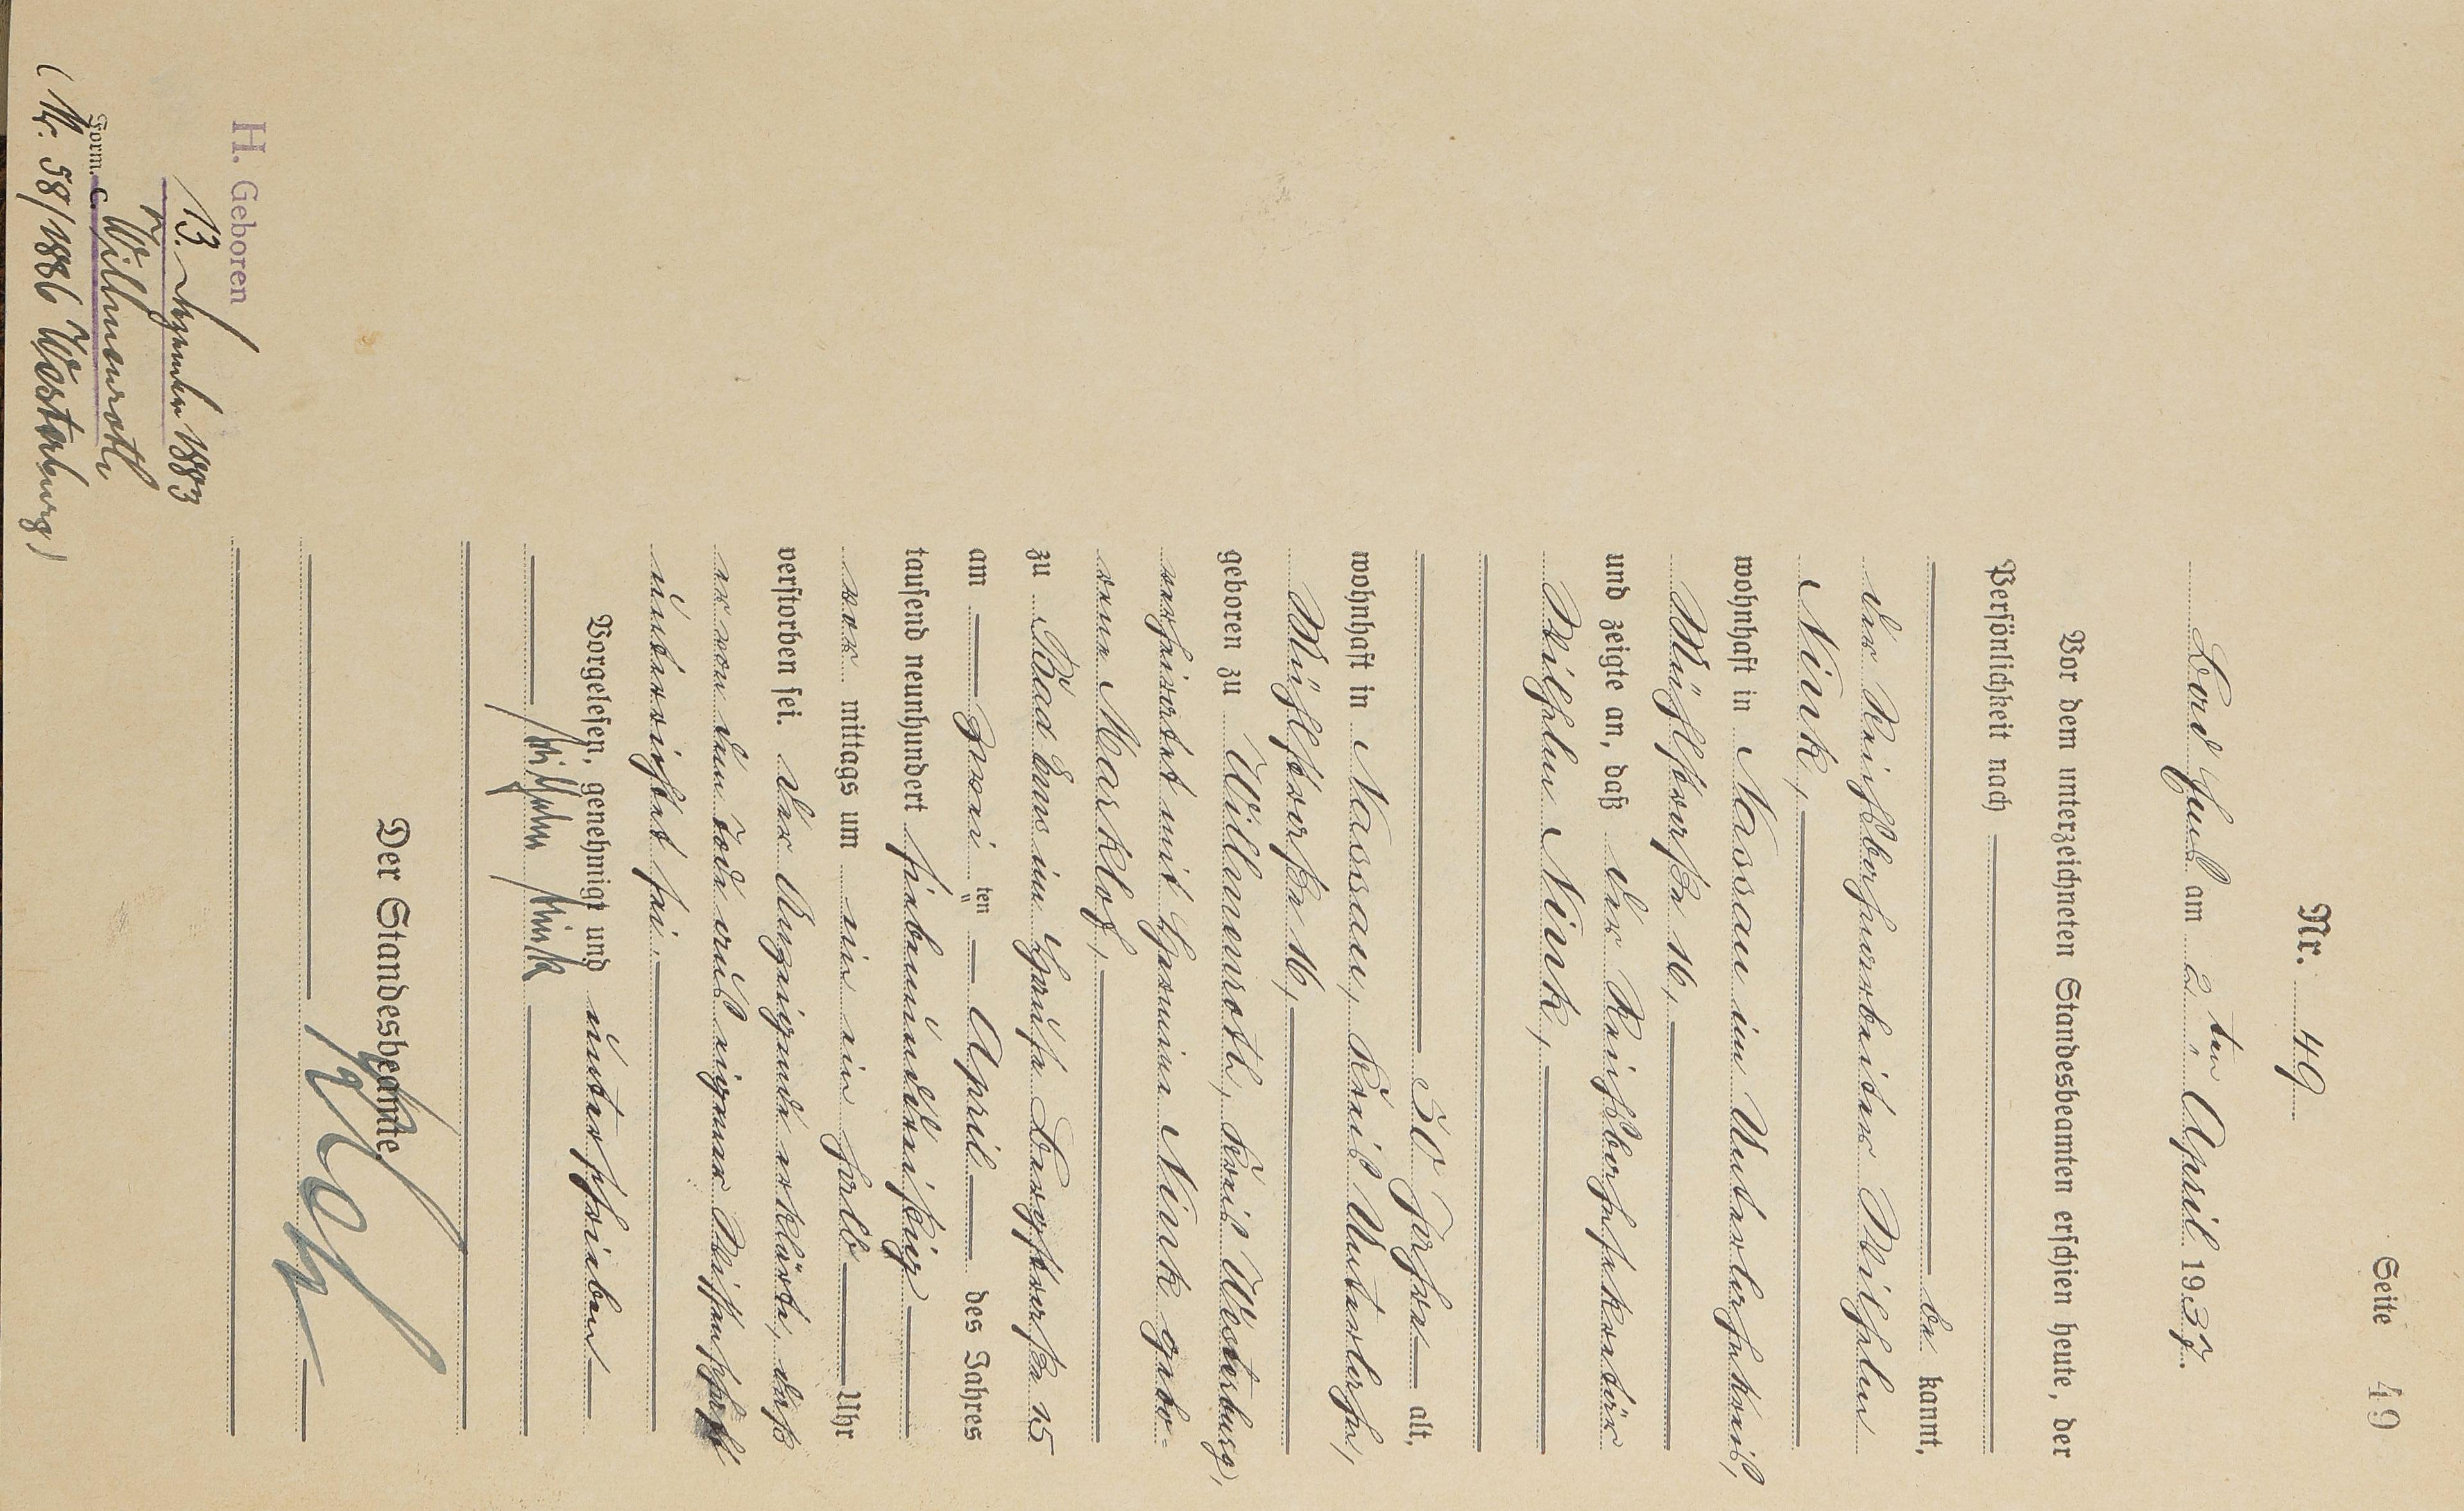 Seite 49
Nr. 49
Bad Ems am 2 ten April 1937.
Vor dem unterzeichneten Standesbeamten erschien heute, der
Persönlichkeit nach
be kannt,
der Reichsbahnarbeiter Wilhelm
Nink,
wohnhaft in Nassau im Unterlahnkreis,
Mühlstraße 16,
und zeigte an, daß der Reichsbahnsekretär
Wilhelm Nink,
50 Jahre alt,
wohnhaft in Nassau, Kreis Unterlahn,
Mühlstraße 16,
geboren zu Willmenroth, Kreis Westerburg,
verheiratet mit Hermine Nink gebo-
rene Markloff,
zu Bad Ems im Hause Bergstraße 15
am zwei ten April des Jahres
tausend neunhundert siebenunddreißig
vor mittags um ein ein halb Uhr
verstorben sei. Der Anzeigende erklärte, daß
er von dem Tode aus eigener Wissenschaft
unterrichtet sei.
Vorgelesen, genehmigt und unterschrieben
Wilhelm Nink
Der Standesbeamte.
H. Geboren
13. 1883
Willmenroth
Form. C.
(Nr. 58/1886 Westerburg)